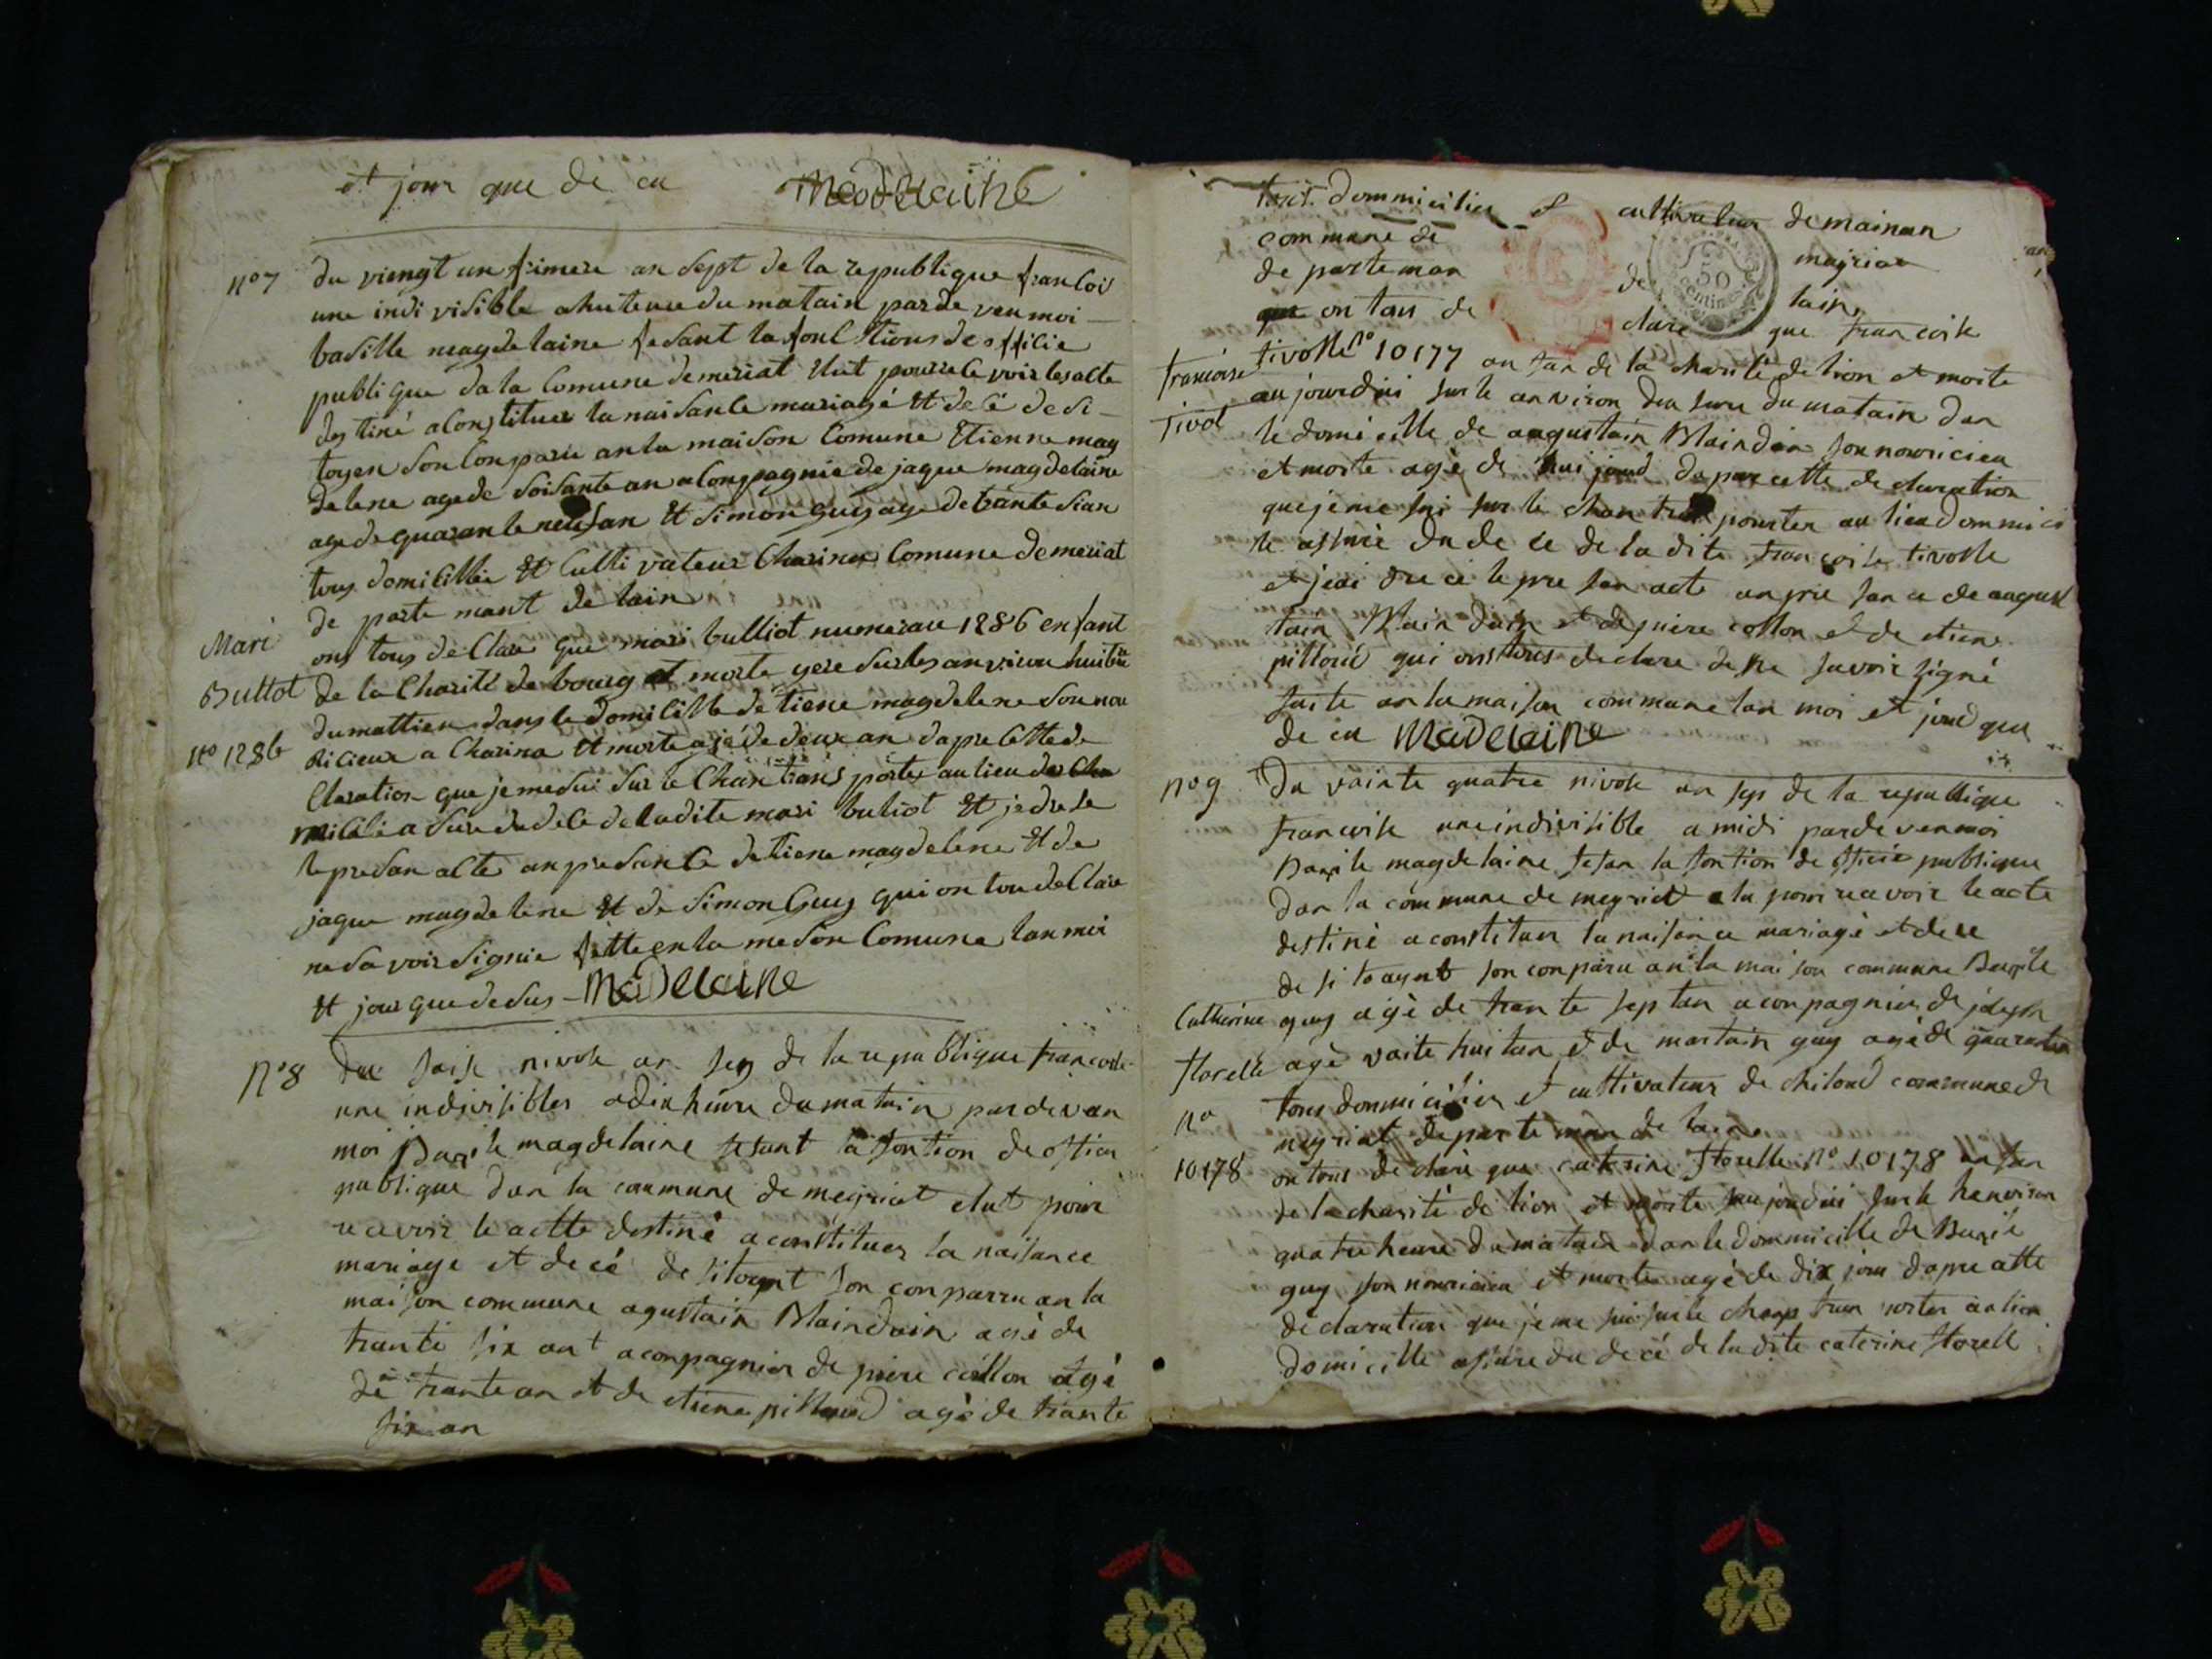 et jour que de cu Madelaine
n°7 du viengt un frimere an sept de la republique francoi
une indi visible a huteure du matain parde ven moi
basille magdelaine fesant la fonctions de officie
publique da la Comune demeriat elut pourre le voir les acte
destiné a Constituer la naisance mariagé Et de cé de si
toyen son Conparu an la maison Comune Etienne mag
delene age de soisante an aConpagnie de jaque magdelaine
age de quarante neuf an Et simon guy age de trante sian
tous domicillie Et Culti vateur Charina Comune demeriat
de parte mant de lain
Mari
Bullot
n° 1286
ons tous de Clare que mari bulliot numerau 1286 enfant
de la Charité de bourg et morte yere sur les anviron huiteure
du mattien dans le domicille detiene magdelene son nou
ricieur a Charina Et morte ajé de deux an dapre Cette de
Claration que je me sui sur le Chan trans porter au lieu
micili a sure du de Ce de ladite mari buliot Et je dre se
le presan acte an presan Ce detiene magdelene Et de
jaque magdelene Et de Simon Guy qui on tou de Clare
ne sa voir signie fette en la meson Comune lan moi
Et jour que de sus Madelaine
n°8 du saise nivose an sep de la republique francoise
une indivisibles a dix heure du matain par devan
moi Basile magdelaine fesant la fontion de oficier
publique dan la commune de meyriat elut pour
recevoir le actte destiné a constituer la naisance
mariage et de cé de sitoyent son conparru an la
maison commune agustain Blaindain agé de
trante six ant aconpagnier de piere collon agé
de trante an et de etiene pilloud agé de trante
six an
tous dommicilier et cultivateur de mainan
commune de meyriat
de parteman de lain
on tous de clare que francoise
francoise
tivol
tivolle n° 10177 an fan de la charité de lion et morte
au jourdhui sur le anviron du matain dan
le domicille de augustain Blaindain son nouricieu
et morte agé de jourd dapre cette declaration
que je me sui sur le chan trans pourter au lieu dommici
le assuré du de ce de la dite francoise tivolle
et jeai dre cé le pre san acte an pre san ce de august
tain Blain dain et de piere collon et de etiene
pilloud qui ons tous declare de ne savoir signé
faite an la maison commune lan moi et jourd que
de cu Madelaine
n°9 Du vainte quatre nivose an sep de la republique
francoise une indivisible a midi parde venmoi
Basile magdelaine fesan la fontion de officié publique
dan la commune de meyriat elu pour recevoir le acte
destiné a constituer la naisance mariagé et de ce
de si toaynt son conparu an la mai son commune Basile
Catherine
florelle
n°
10178
guy agé de trante sep tan aconpagnier de joseph
agé vaite huitan et de martain guy agé de quarante
tous dommicilier et cultivateur de chiloud commune de
meyriat departeman de lain
on tous de claré que caterine florelle n° 10178 anfan
de la charité de lion et morte aujourdhui sur le hanviron
quatre heure du matain dan le dommicille de Basile
guy son nouricieu et morte agé de dix jour dapre cette
déclaration que je me sui sur le champ tran porter au lieu
domicille assure du decé de ladite caterine florell
50
centimes